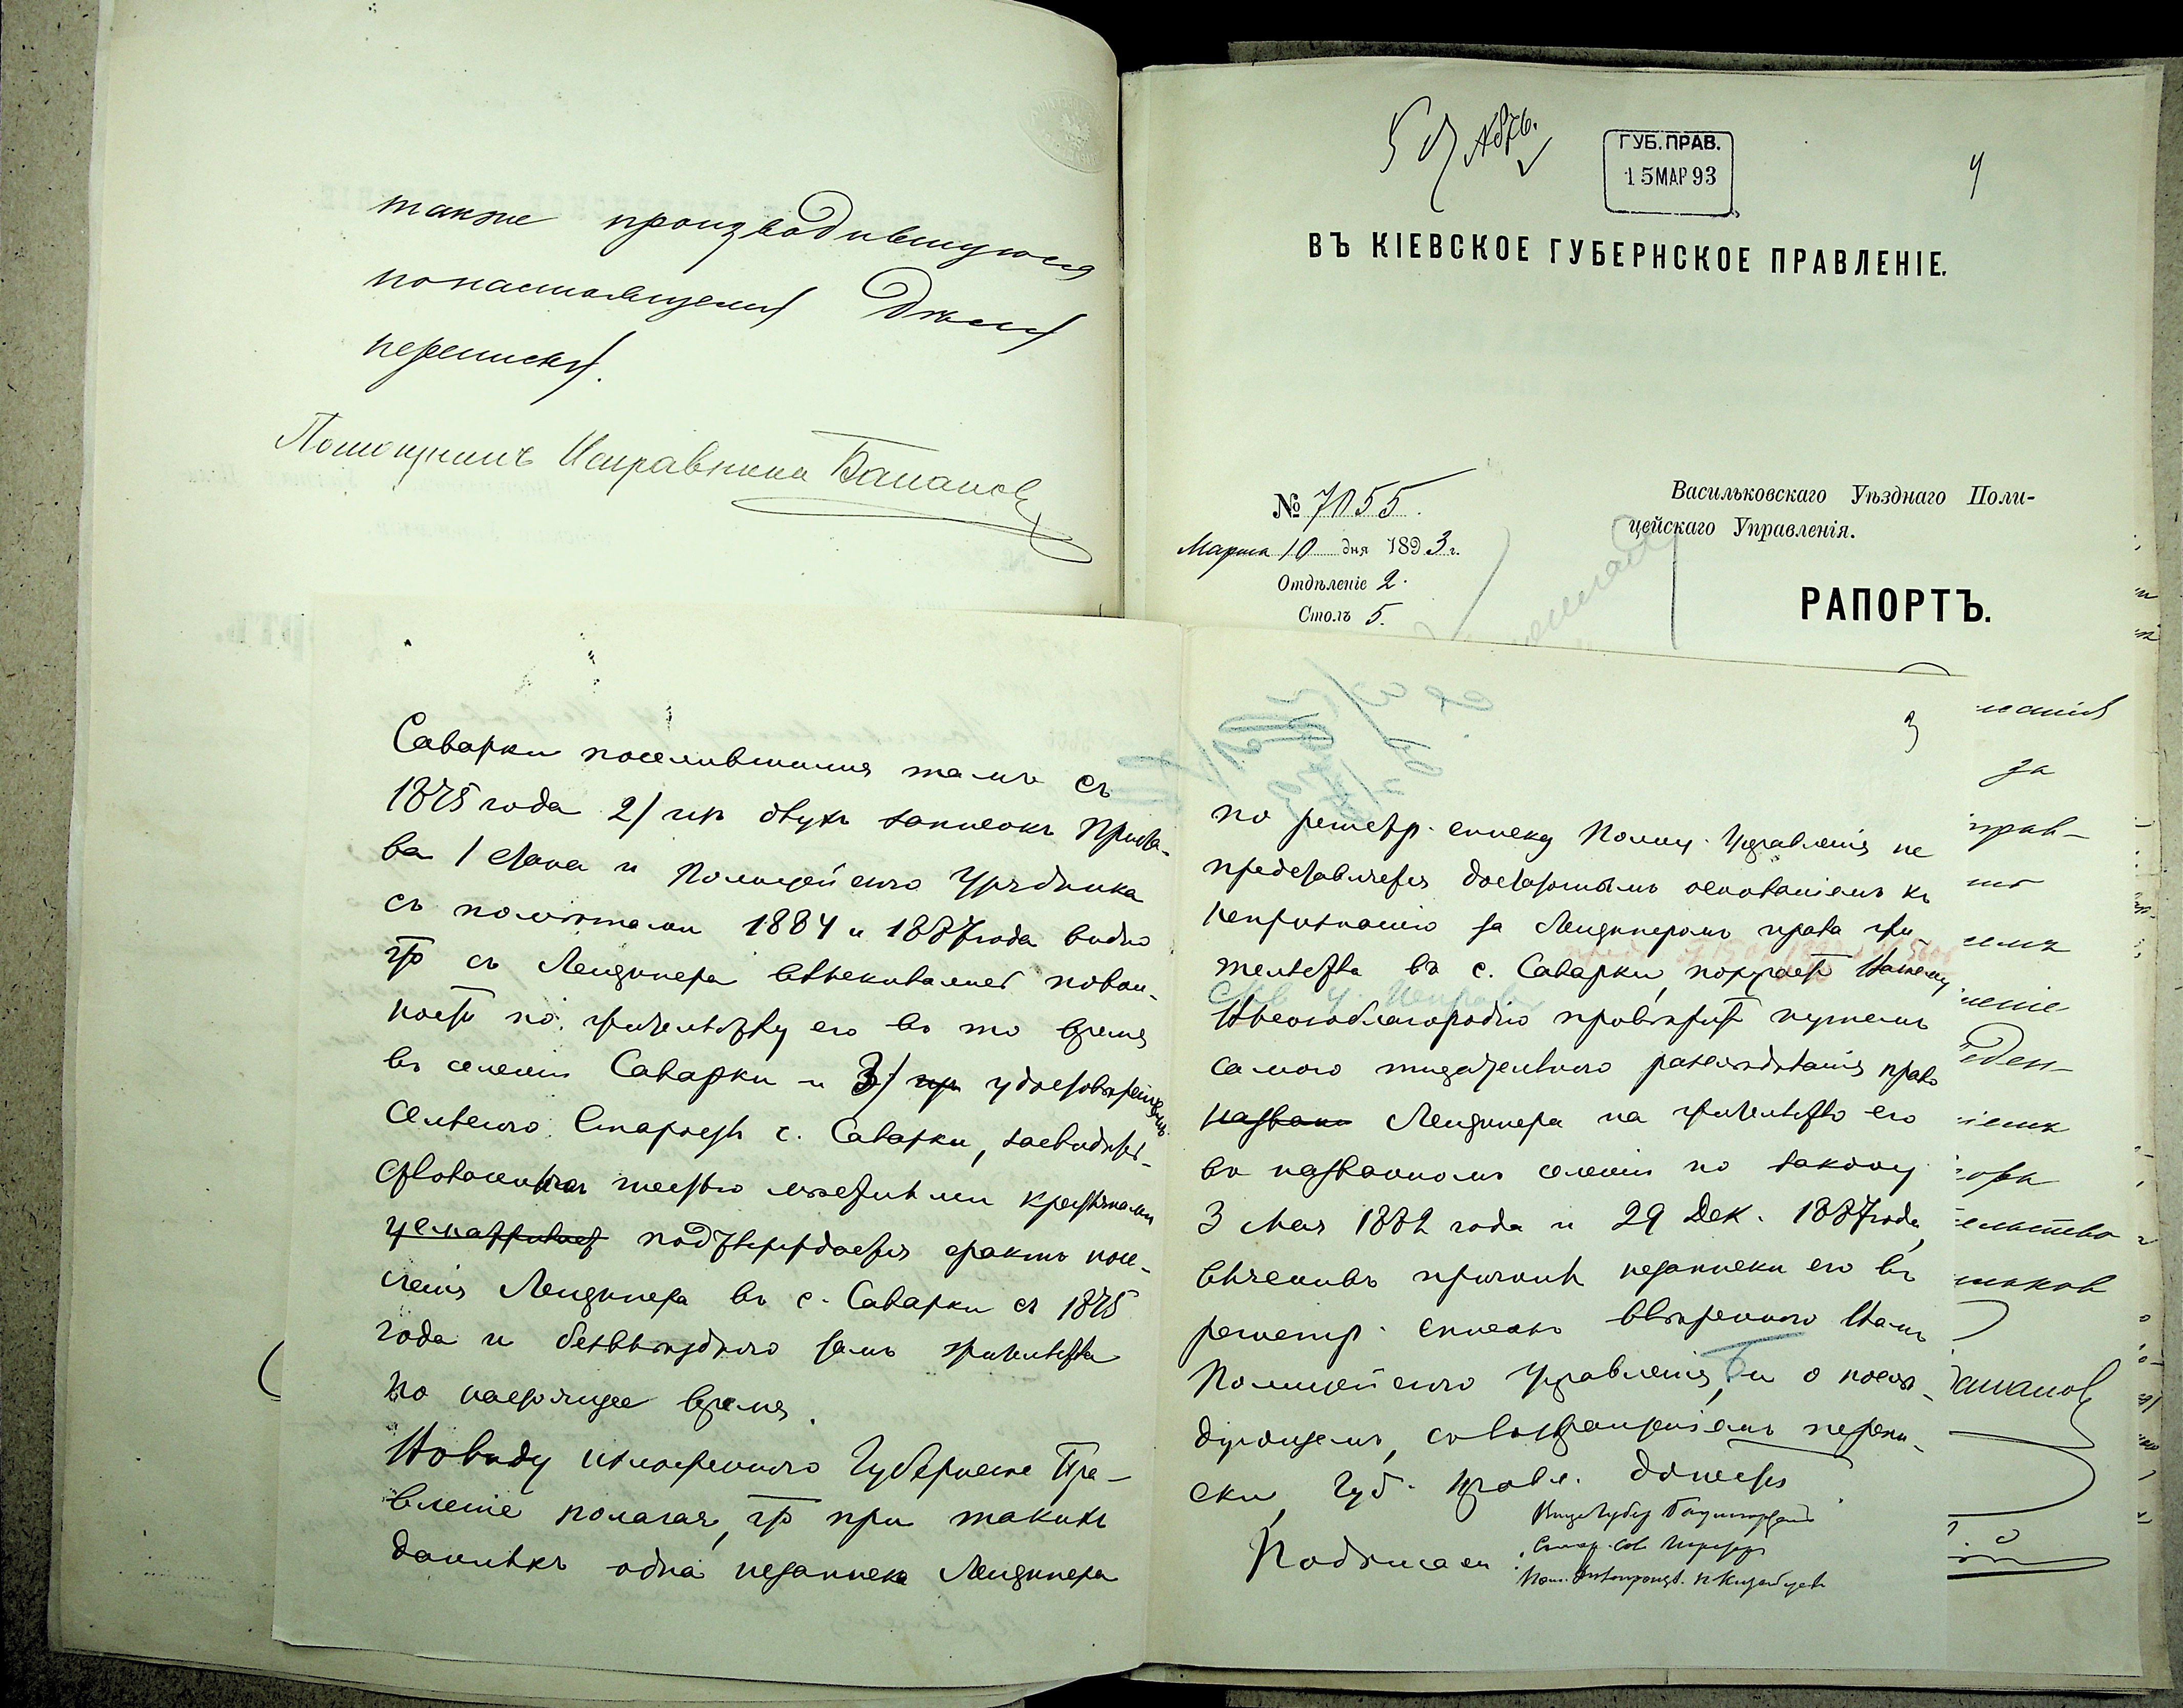 также производившуюся
по настоящему дѣлу
переписку.
Помощникъ Исправника
5 № 876.
ГУБ. ПРАВ.
15 МАР 93
4
ВЪ КІЕВСКОЕ ГУБЕРНСКОЕ ПРАВЛЕНІЕ.
№ 7055.
Марта 10 дня 1893 г.
Отдѣленіе 2.
Столъ 5.
Васильковскаго Уѣзднаго Поли-
цейскаго Управленія.
РАПОРТЪ.
Саварки поселившимся тамъ съ
1875 года 2/ изъ двухъ записокъ Приста-
ва 1 стана и Полицейскаго Урядника
съ помѣтами 1884 и 1887 года видно
что съ Лендинера взыскивались повин-
ности по жительству его въ то время
въ селеніи Саварки и 3/ удостовѣреніемъ
Сельскаго Старосты с. Саварки, засвидѣтель-
ствованнымъ шестью мѣстными крестьянами
усматривает подтверждается фактъ посе-
ленія Лендинера въ с. Саварки съ 1875
года и безвыѣзднаго тамъ жительства
по настоящее время.
Въ виду изложеннаго Губернское Пра-
вленіе полагая, что при такихъ
данныхъ одна незаписка Лендинера
3
по регистр. списку Полиц. Управленія не
представляется достаточнымъ основаніемъ къ
непризнанію за Лендинеромъ права жи-
тельства въ с. Саварки, поручаетъ Вашему
Высокоблагородію провѣрить путемъ
самаго тщательнаго разслѣдованія право
названн Лендинера на жительство его
въ названномъ селеніи по закону
3 Мая 1882 года и 29 Дек. 1887 года,
выяснивъ причины незаписки его въ
регистр. списокъ ввѣреннаго Вамъ
Полицейскаго Управленія, и о послѣ-
дующемъ, съ возвращеніемъ перепи-
ски, Губ. Правл. донести.
Подписали:
за